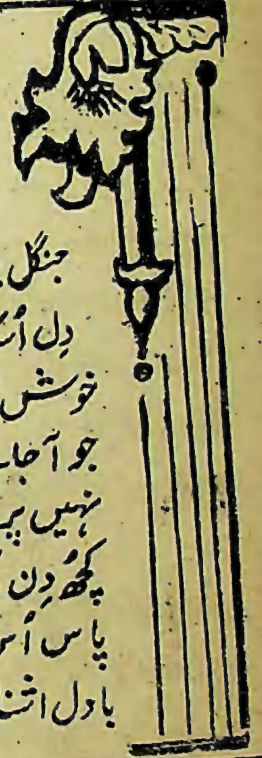 جنگل
دِل اُس
خوش
جو آجا
نہیں پر
کچھُ دِن
پاس اُس
بادل اتنا